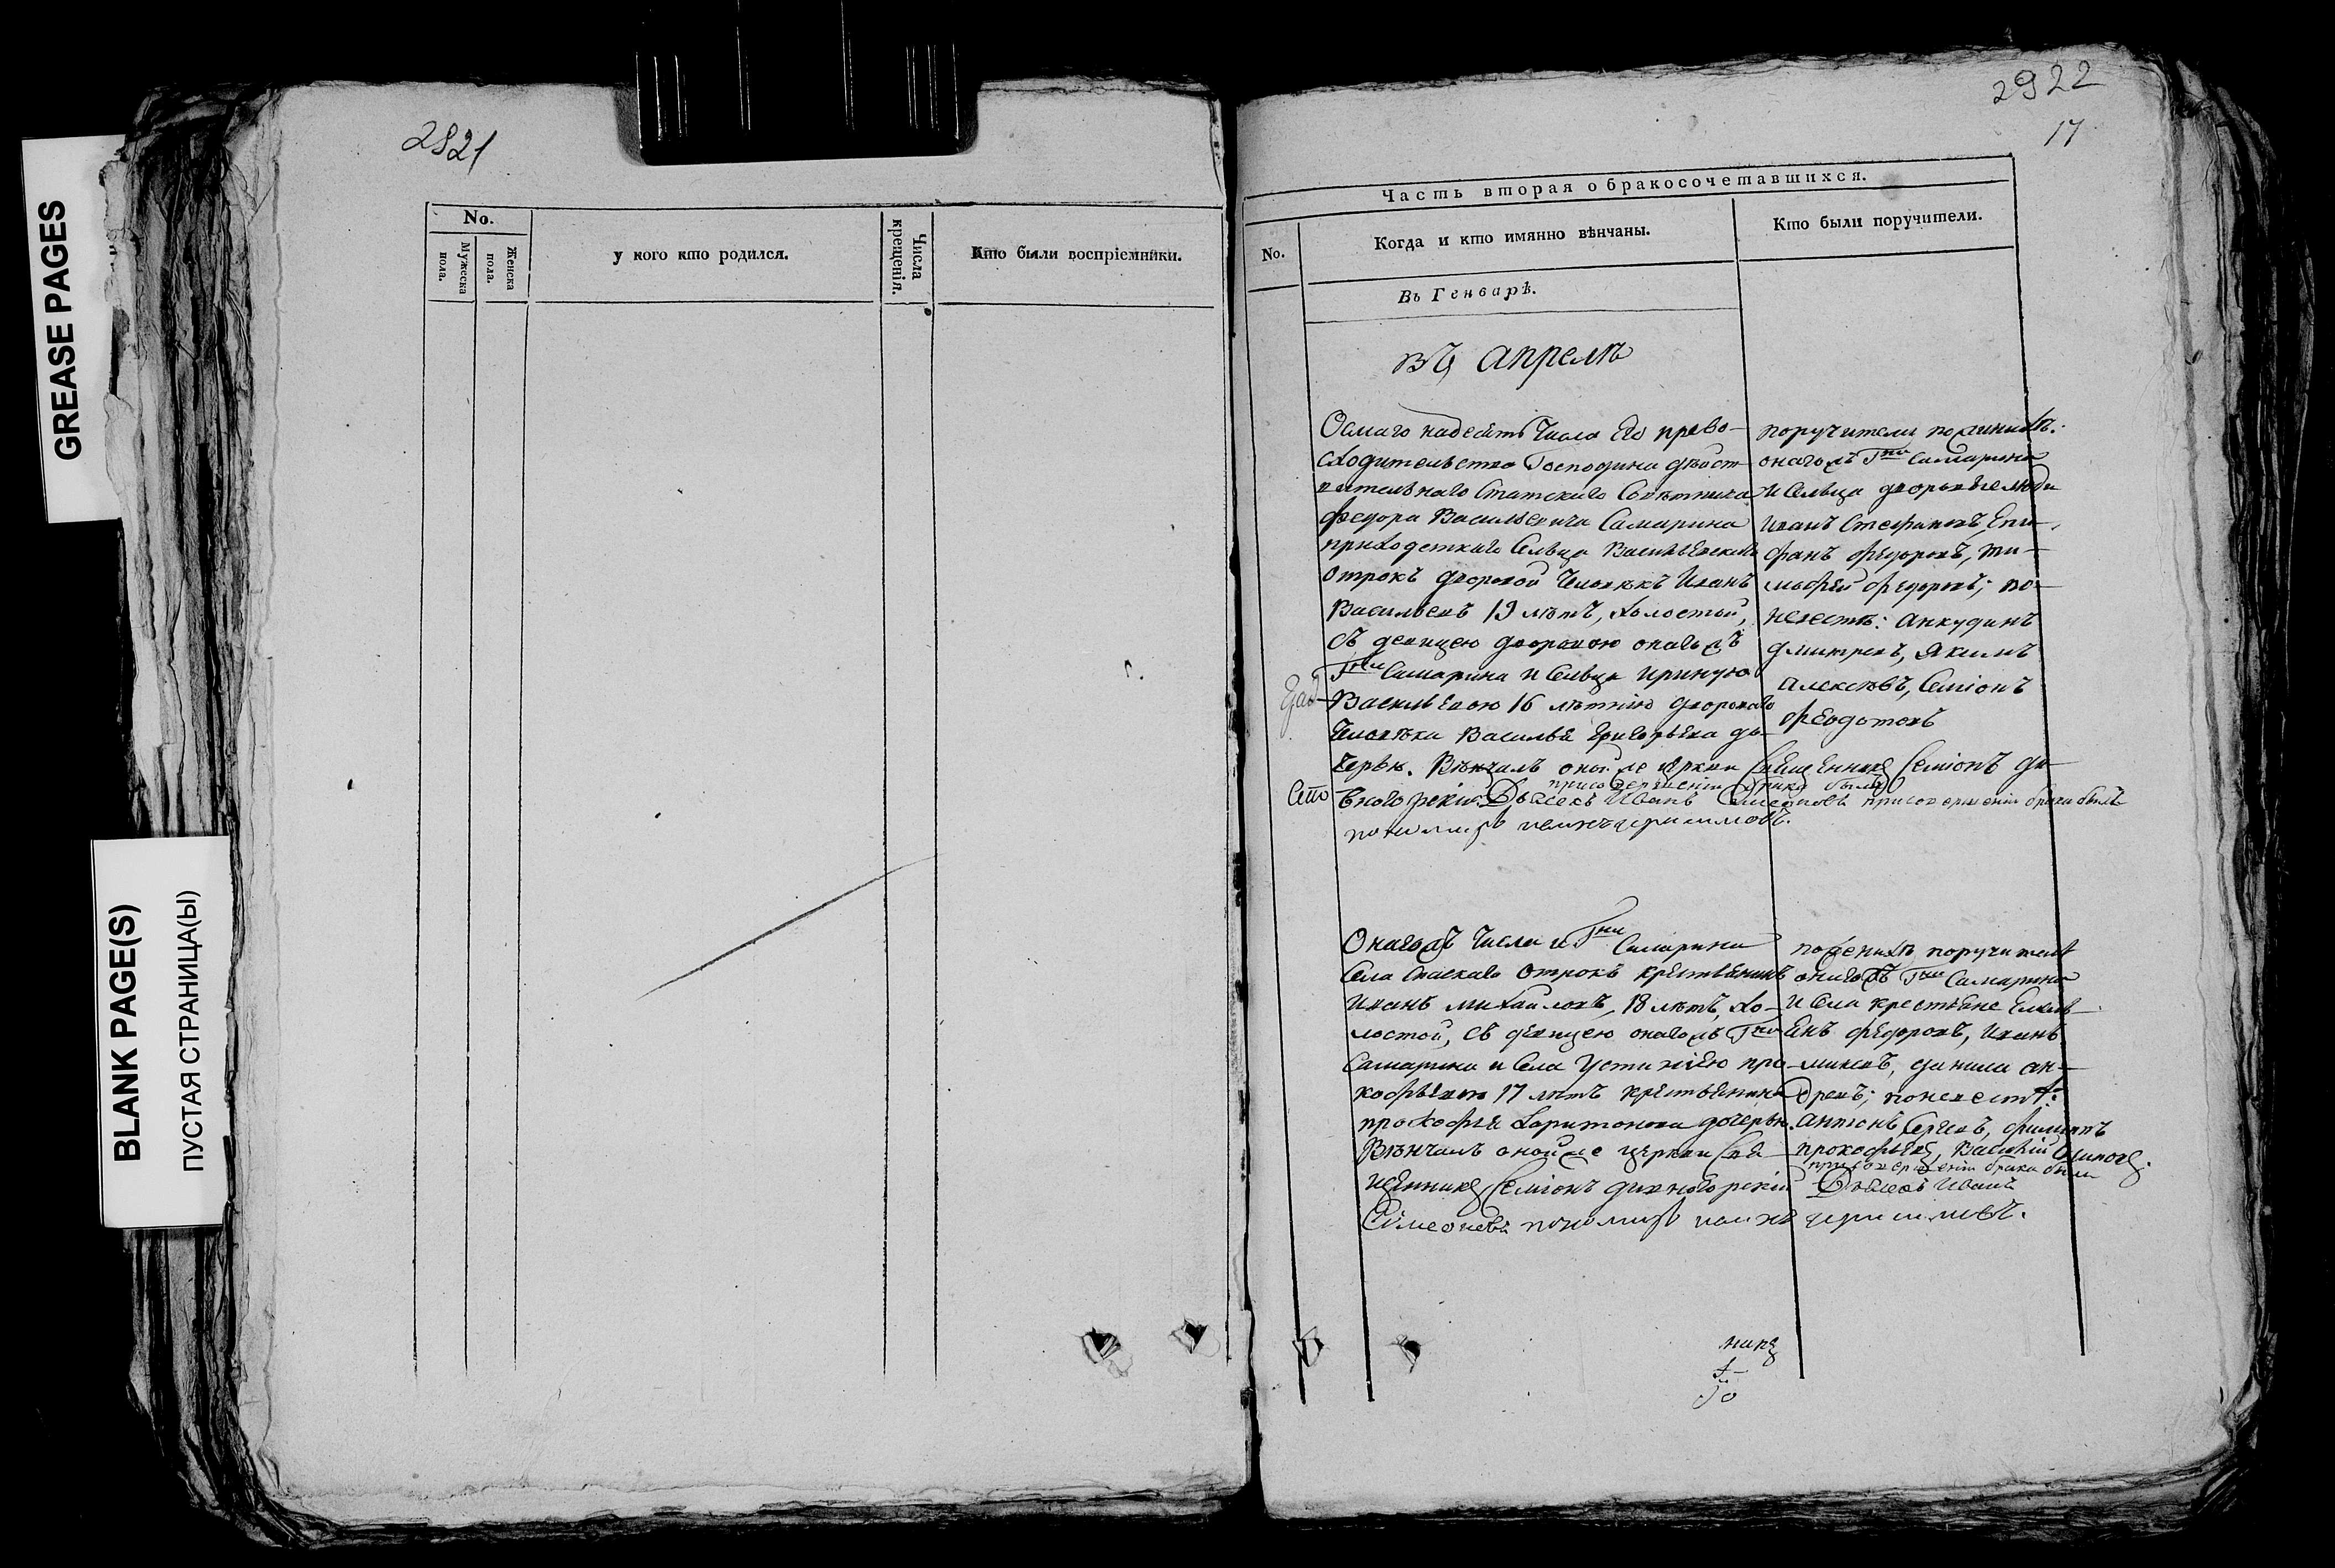 GREASE PAGES
BLANK PAGE(S)
ПУСТАЯ СТРАНИЦА(Ы)
2821
No.
Мужеска пола.
Женска пола.
у кого кто родился.
Числа крещенія.
Кто были воспріемники.
2922
17
Часть вторая о бракосочетавшихся.
No.
Когда и кто имянно вѣнчаны.
Кто были поручители.
Въ Генварѣ.
въ апрелѣ
Осмаго надесять Числа его прево-
сходительства Господина дѣйст-
вительнаго Статскаго Совѣтника
федора Васильевича Самарина
приходскаго Сельца Васильевскаго
отрокъ дворовой Человѣкъ Иванъ
Васильевъ 19 лѣтъ, холостой,
съ девицею дворовою онагожъ
Гна Самарина и Сельца ириною
Васильевою 16 лѣтнію двороваго
Человѣка Василья Григорьева до-
черью. Вѣнчалъ оной же церкви Священникъ Семіонъ ди-
вногорскій
Дьячекъ Иванъ Симеоновъ при совершеніи брака былъ
поручители по женихѣ:
онагожъ Гна Самарина
и Сельца дворовые люди
иванъ Стефановъ, Епи-
фанъ федоровъ, ти-
мофей федоровъ; по
невестѣ: анкудинъ
дмитревъ, якимъ
алексѣевъ, Семіонъ
феодотовъ
Онагожъ Числа и Гна Самарина
Села Спаскаго отрокъ крестьянинъ
иванъ михайловъ, 18 лѣтъ, хо-
лостой, съ девицею онагожъ Гна
Самарина и Села устиніею про-
кофьевою 17 лѣтъ крестьянина
прокофья харитонова дочерью.
Вѣнчалъ оной же церкви Свя-
щенникъ Семіонъ дивногорскій
по женихѣ поручители
онагожъ Гна Самарина
и Села крестьяне Емель-
янъ федоровъ, иванъ
данила ан-
древъ; по невестѣ:
антонъ Сергевъ, филиппъ
прокофьевъ, Василій Осиповъ.
при совершеніи брака были
Дьячекъ Иванъ
Симеоновъ